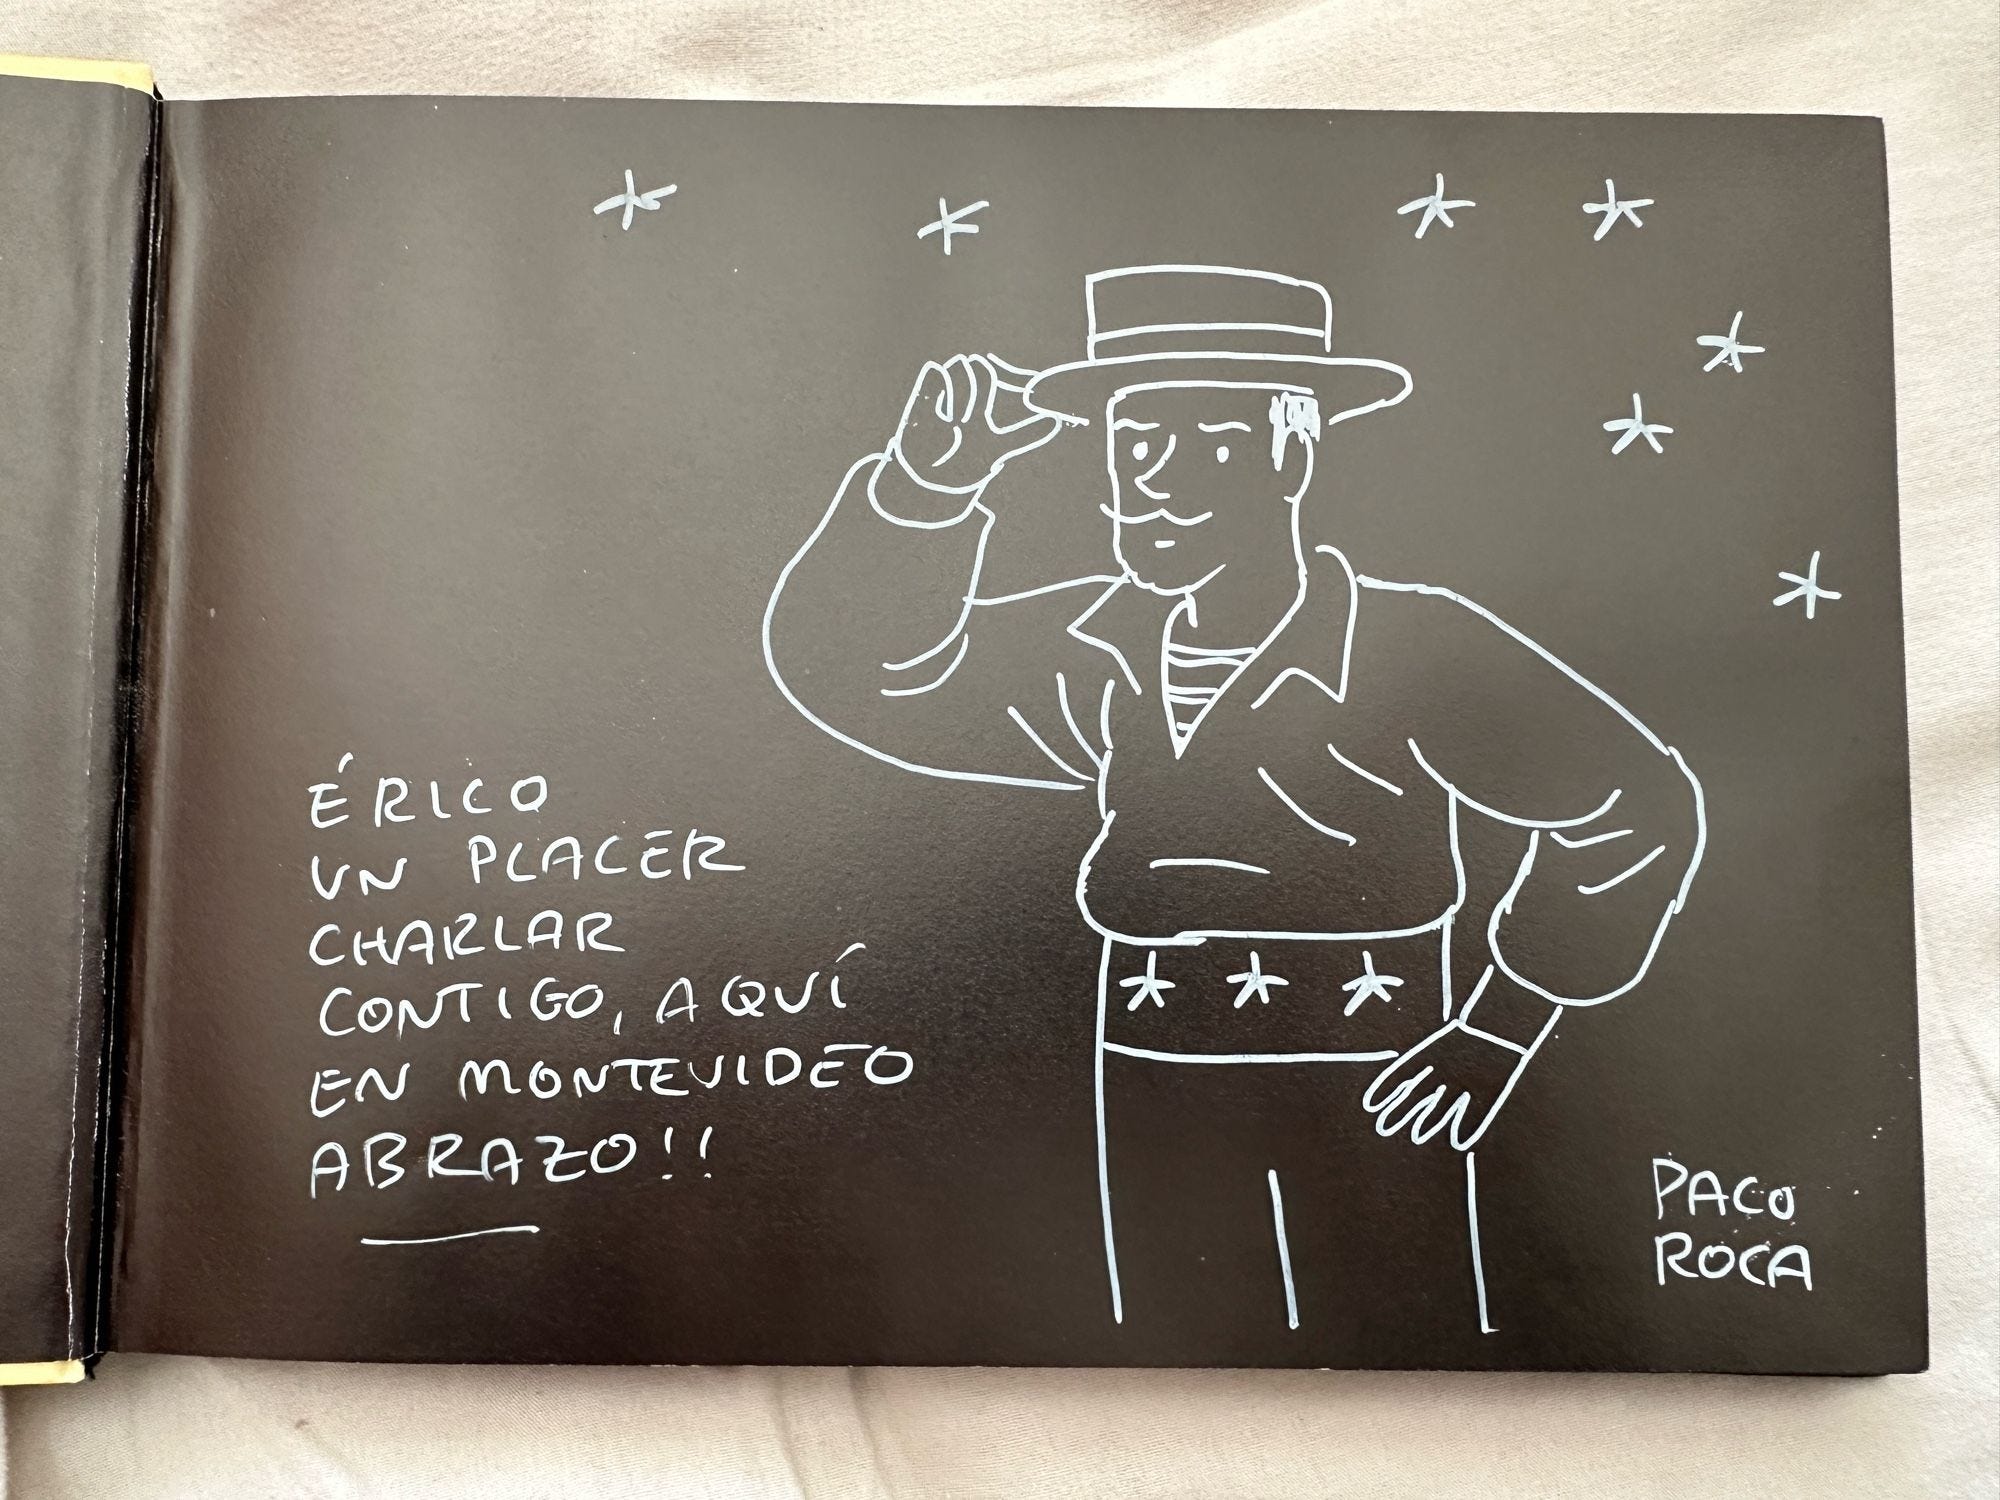 ÉRICO
UN PLACER
CHARLAR
CONTIGO, AQUÍ
EN MONTEVIDEO
ABRAZO!!
PACO
ROCA